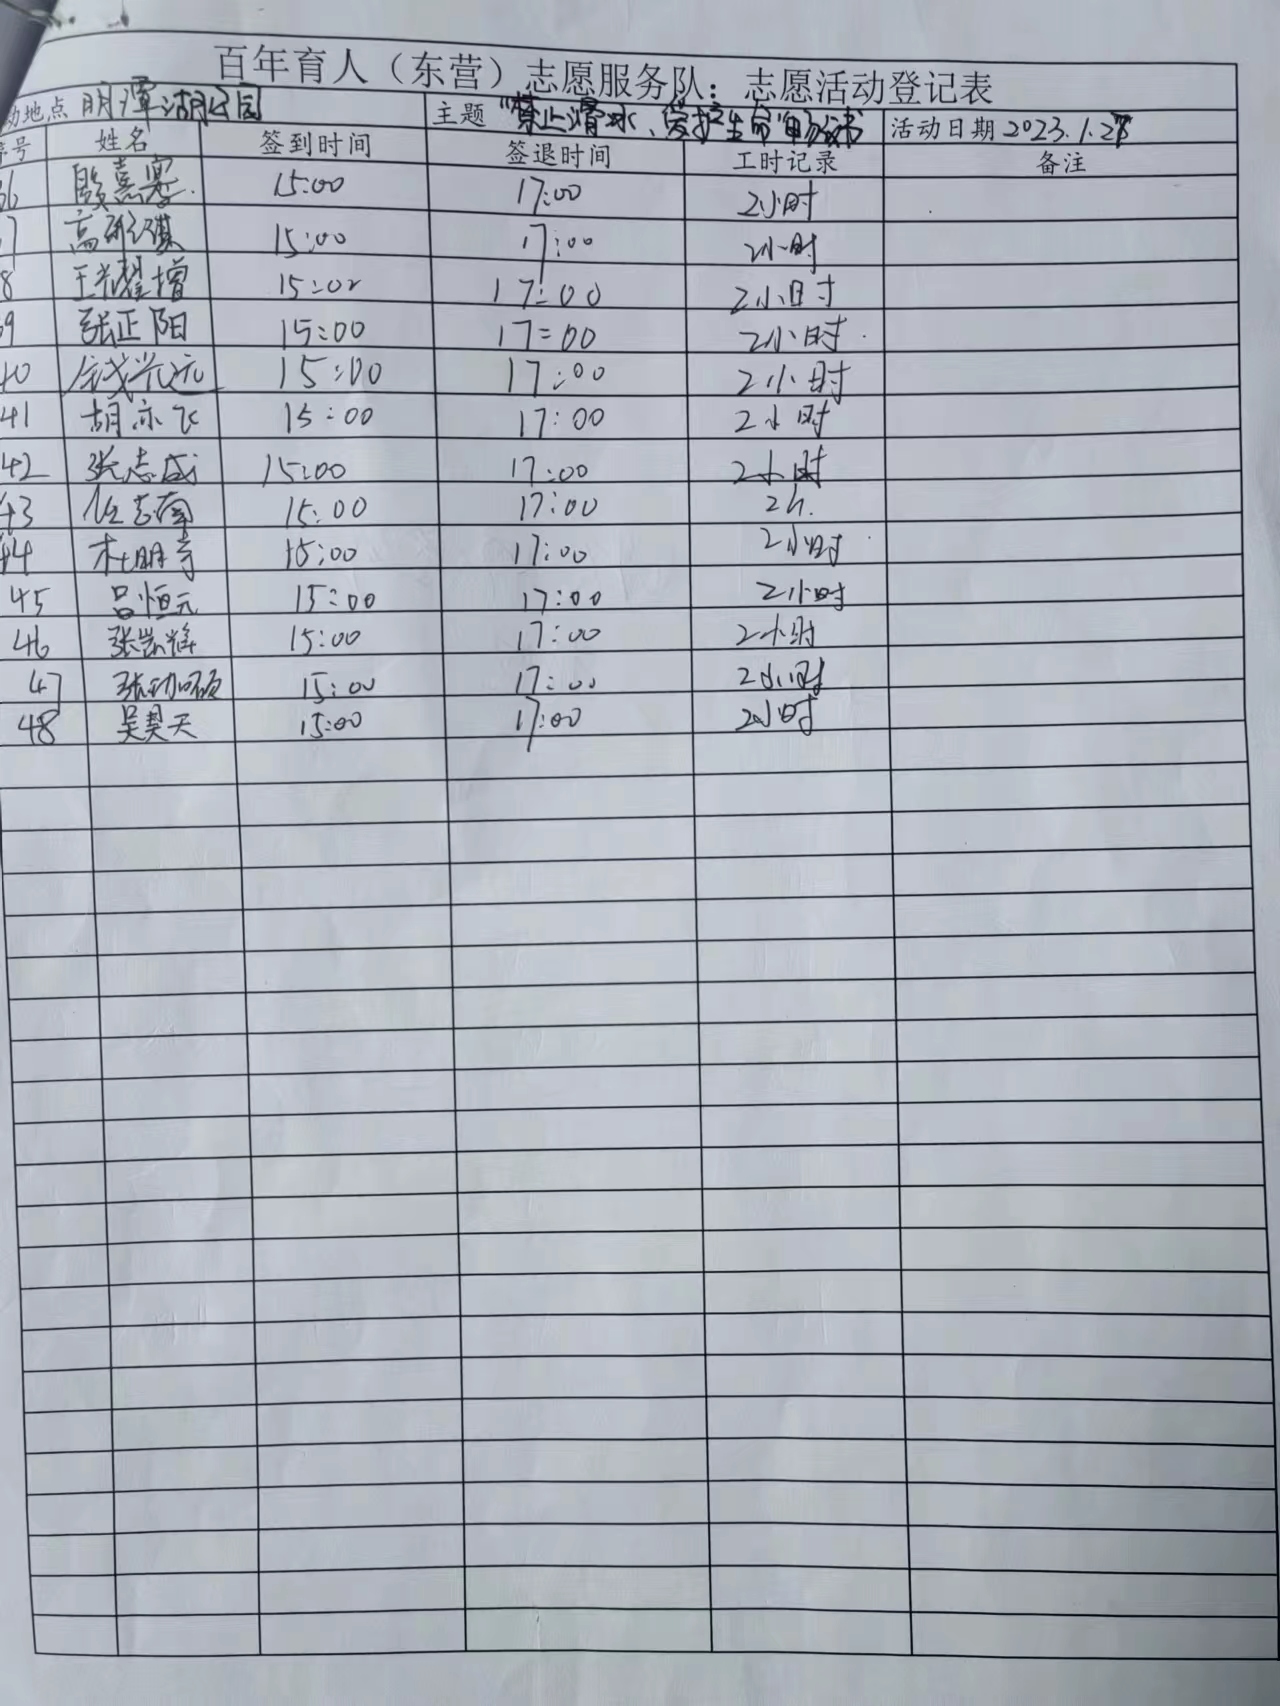 百年育人（东营）志愿服务队：志愿活动登记表
动地点 明潭湖公园 主题 "禁止滑冰、爱护生命" 活动日期 2023.1.27
序号 姓名 签到时间 签退时间 工时记录 备注
36 殷嘉 15:00 17:00 2小时
37 高 15:00 17:00 2小时
38 王耀增 15:00 17:00 2小时
39 张正阳 15:00 17:00 2小时
40 15:00 17:00 2小时
41 胡亦飞 15:00 17:00 2小时
42 张志成 15:00 17:00 2小时
43 任志国 15:00 17:00 2h.
44 杜明 15:00 17:00 2小时
45 吕恒元 15:00 17:00 2小时
46 张凯 15:00 17:00 2小时
47 张 15:00 17:00 2小时
48 吴昊天 15:00 17:00 2小时